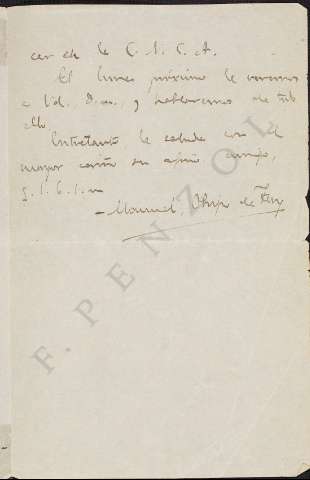 cer de la C. N. C. A.
El lunes próximo le veremos
a Vd. D. m., y hablaremos de
ello
Entretanto, le saluda con el
mayor cariño su afmo. amigo,
Manuel, Obispo de Tuy
F. PENZOL